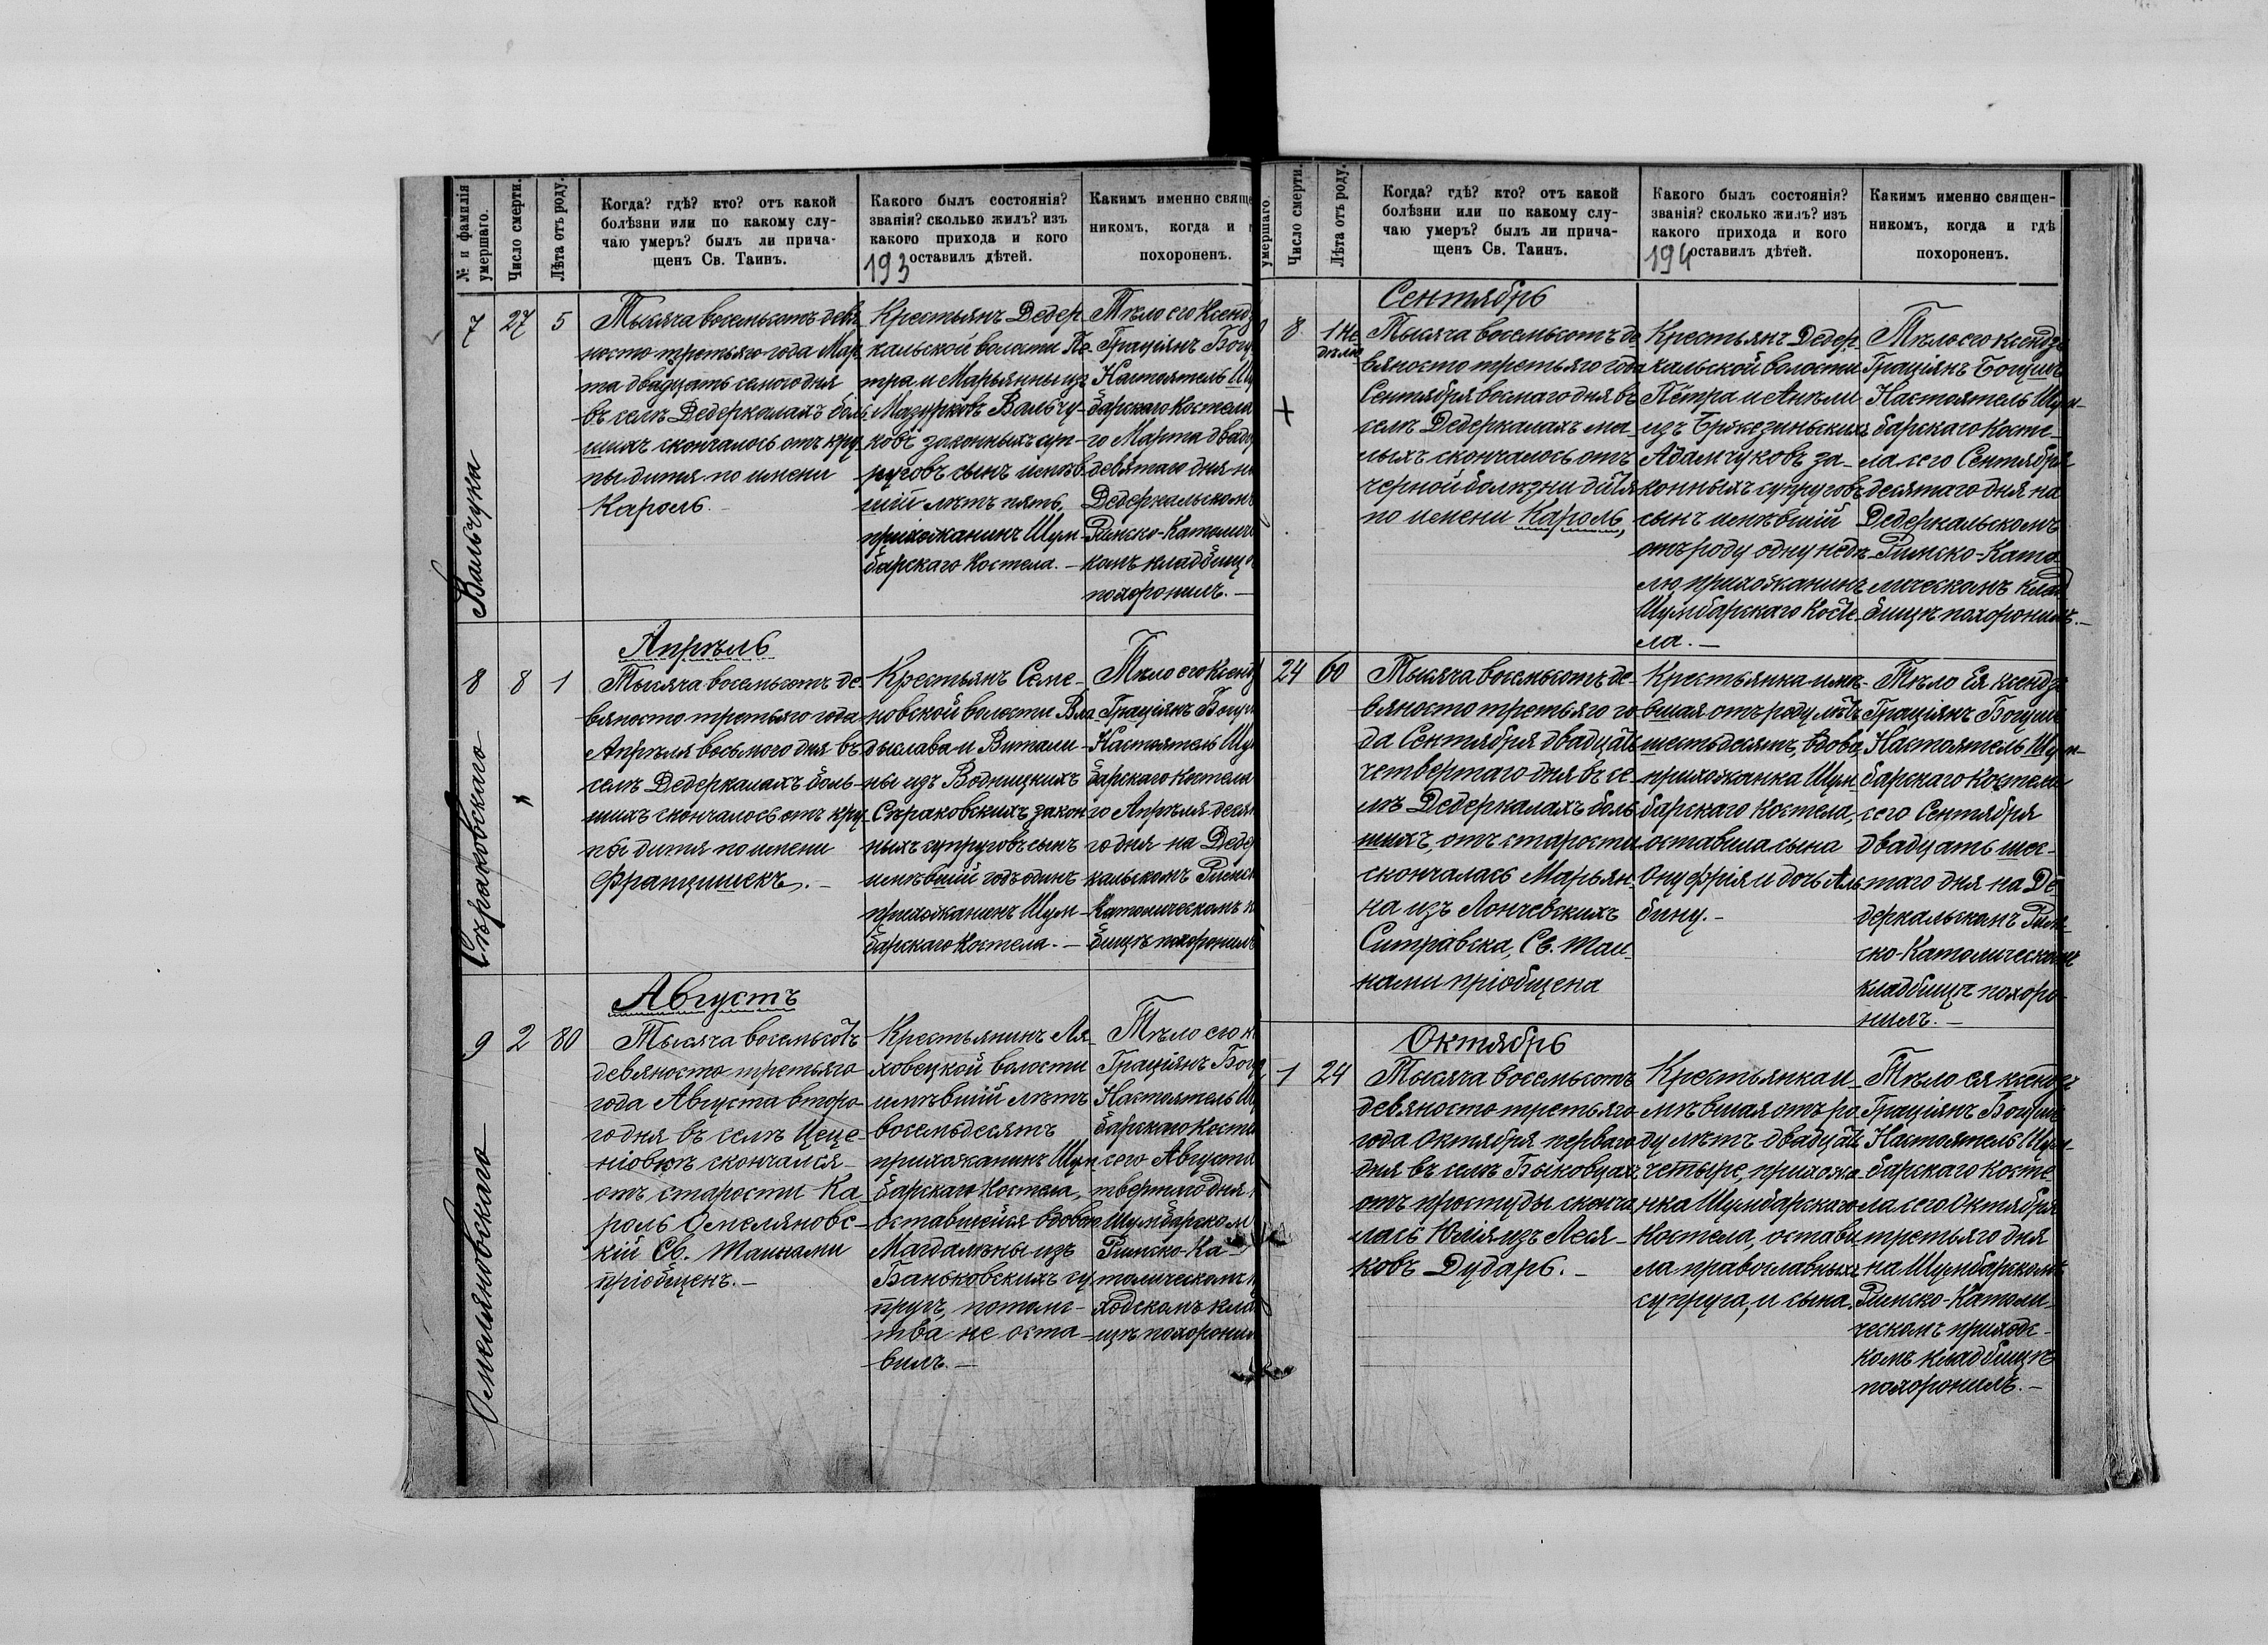 № и фамилія
умершаго.
Число смерти.
Лѣта отъ роду.
Когда? гдѣ? кто? отъ какой
болѣзни или по какому слу-
чаю умеръ? былъ ли прича-
щенъ Св. Таинъ.
Какого былъ состоянія?
званія? сколько жилъ? изъ
какого прихода и кого
оставилъ дѣтей.
193
Какимъ именно свяще
никомъ, когда и г
похороненъ.
7
Вальчука
27
5
Тысяча восемьсотъ девя-
носто третьяго года Мар-
та двадцать семого дня
въ селѣ Дедеркалахъ боль-
шихъ скончалось отъ кру-
пы дитя по имени
Кароль.
Крестьянъ Дедер-
кальской волости Пе-
тра и Марьянны изъ
Мазурковъ Вальчу-
ковъ законныхъ суп-
руговъ сынъ имѣв-
шій лѣтъ пять,
прихожанинъ Шум-
барскаго Костела. —
Тѣло его Ксенд
Граціянъ Богу
Настоятель Шу
барскаго Костела
го Марта двад
девятаго дня н
Дедеркальском
Римско-Католиче
комъ кладбищ
похоронилъ. —
8
Сѣраковскаго
8
1
Апрѣль
Тысяча восемьсотъ де-
вяносто третьяго года
Апрѣля восьмого дня въ
селѣ Дедеркалахъ боль-
шихъ скончалось отъ кру-
пы дитя по имени
Францишекъ. —
Крестьянъ Семе-
новской волости Вла-
дыслава и Витали-
ны изъ Водницкихъ
Сѣраковскихъ закон-
ныхъ супруговъ сынъ
имѣвшій годъ одинъ
прихожанинъ Шум-
барскаго Костела. —
Тѣло его Ксенд
Граціянъ Богу
Настоятель Шу
барскаго Костела
го Апрѣля деся
го дня на Деде
кальскомъ Римс
Католическомъ к
бищѣ похоронилъ
9
Омеляновскаго
2
80
Августъ
Тысяча восемьсотъ
девяносто третьяго
года Августа второ-
го дня въ селѣ Цеце-
ніовкѣ скончался
отъ старости Ка-
роль Омеляновс-
кій Св. Тайнами
пріобщенъ. —
Крестьянинъ Ля-
ховецкой волости
имѣвшій лѣтъ
восемьдесятъ
прихожанинъ Шум-
барскаго Костела,
оставшейся вдовою
Магдалѣны изъ
Баньковскихъ су-
пругъ, потомс-
тва не оста-
вилъ. —
Тѣло его к
Граціянъ Богу
Настоятель Шу
барскаго Косте
сего Августа
твертаго дня
Шумбарском
Римско-Ка-
толическомъ
ходскомъ кла
щѣ похоронил
умершаго
Число смерти.
Лѣта отъ роду.
Когда? гдѣ? кто? отъ какой
болѣзни или по какому слу-
чаю умеръ? былъ ли прича-
щенъ Св. Таинъ.
Какого былъ состоянія?
званія? сколько жилъ? изъ
какого прихода и кого
оставилъ дѣтей.
194
Какимъ именно священ-
никомъ, когда и гдѣ
похороненъ.
8
1 не
дѣлю
Сентябрь
Тысяча восемьсотъ де
вяносто третьяго года
Сентября восмаго дня въ
селѣ Дедеркалахъ ма-
лыхъ скончалось отъ
черной болѣзни дитя
по имени Кароль,
Крестьянъ Дедер-
кальской волости
Пётра и Анѣли
изъ Бржезиньскихъ
Адамчуковъ за-
конныхъ супруговъ
сынъ имѣвшій
отъ роду одну недѣ-
лю, прихожанинъ
Шумбарскаго Косте-
ла. —
Тѣло его ксендзъ
Граціянъ Богушъ
Настоятель Шум-
барскаго Косте-
ла сего Сентября
десятаго дня на
Дедеркальскомъ
Римско-Като-
лическомъ клад
бищѣ похоронилъ. —
24
60
Тысяча восемьсотъ де-
вяносто третьяго го-
да Сентября двадцать
четвертаго дня въ се-
лѣ Дедеркалахъ боль-
шихъ, отъ старости
скончалась Марьян-
на изъ Лончевскихъ
Ситравска, Св. Тай-
нами пріобщена
Крестьянка имѣ-
вшая отъ роду лѣтъ
шестьдесятъ, вдова,
прихожанка Шум-
барскаго Костела,
оставила сына
Онуфрія и дочь Аль-
бину. —
Тѣло Ея ксендзъ
Граціянъ Богушъ
Настоятель Шум-
барскаго Костела
сего Сентября
двадцать шес-
таго дня на Де
деркальскомъ Рим-
ско-Католическомъ
кладбищѣ похоро-
нилъ. —
1
24
Октябрь
Тысяча восемьсотъ
девяносто третьяго
года Октября перваго
дня въ селѣ Быковцахъ
отъ простуды сконча-
лась Юлія изъ Леся-
ковъ Дударь. —
Крестьянка и-
мѣвшая отъ ро-
ду лѣтъ двадцать
четыре, прихожа-
нка Шумбарскаго
Костела, остави-
ла православныхъ
супруга, и сына.
Тѣло ея ксендзъ
Граціянъ Богушъ
Настоятель Шум-
барскаго Косте-
ла сего Октября
третьяго дня
на Шумбарскомъ
Римско-Католи-
ческомъ приходс-
комъ кладбищѣ
похоронилъ. —